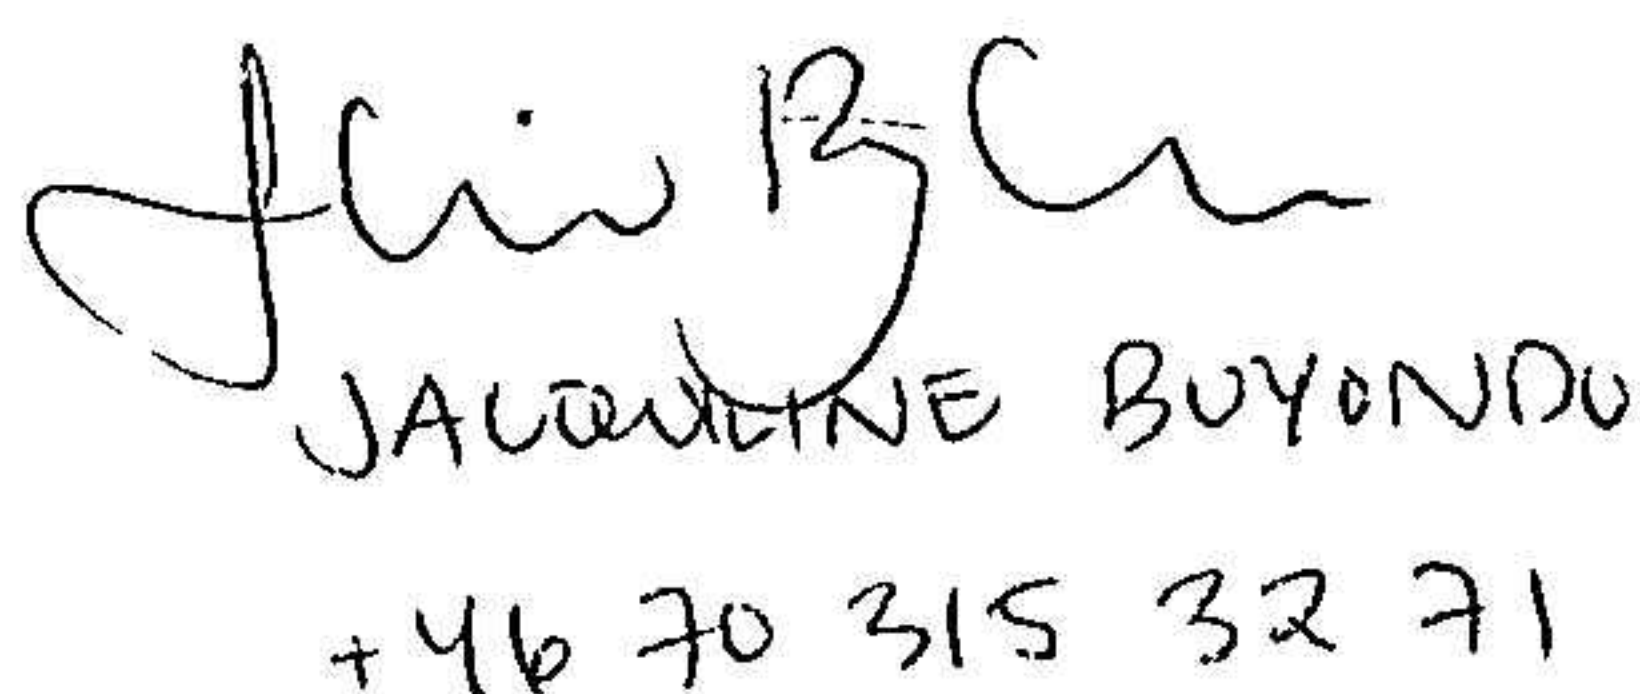 JACQUELINE BUYONDO
+46 70 315 32 71